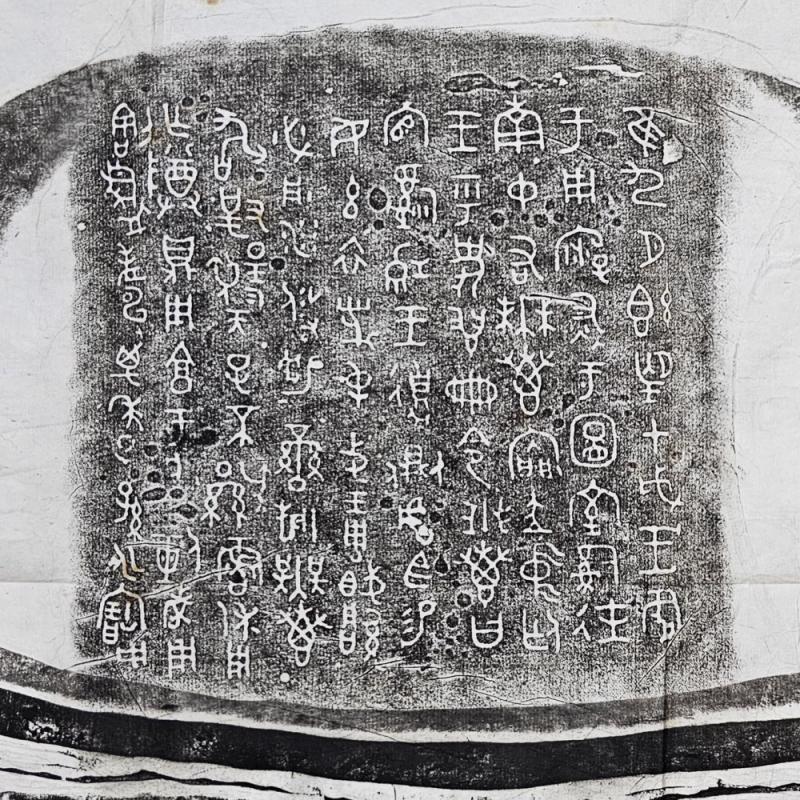 隹九月既望甲戌王各
于周廟灰于圖室嗣徒
南中右無叀內門立中廷
王乎史翏冊令無叀曰
官嗣王側虎
臣易女玄衣黹屯戈琱
必彤沙攸勒鑾旂無
叀敢對揚天子不顯魯休用
乍尊鼎用享于朕剌考用
割眉壽萬年子孫永寶用